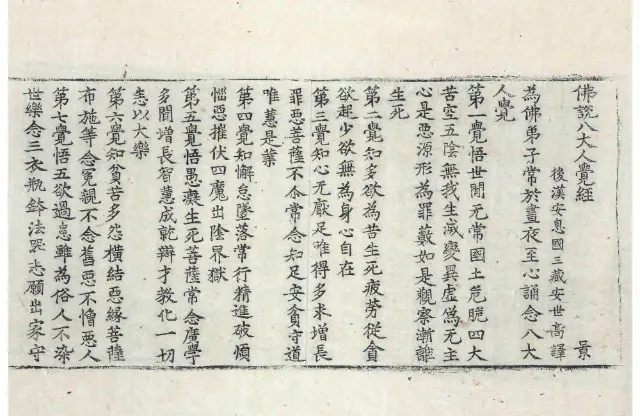 佛說八大人覺経 景
後漢安息國三藏安世高譯
為佛弟子常於晝夜至心誦念八大
人覺
第一覺悟世間无常國土危脆四大
苦空五陰無我生滅變異虛偽无主
心是惡源形為罪藪如是觀察漸離
生死
第二覺知多欲為苦生死疲勞從貪
欲起少欲無為身心自在
第三覺知心无厭足唯得多求增長
罪惡菩薩不尒常念知足安貧守道
唯慧是業
第四覺知懈怠墜落常行精進破煩
惱惡摧伏四魔出陰界獄
第五覺悟愚癡生死菩薩常念廣學
多聞增長智慧成就辯才教化一切
悉以大樂
第六覺知貧苦多怨橫結惡緣菩薩
布施等念冤親不念舊惡不憎惡人
第七覺悟五欲過患雖為俗人不染
世樂念三衣瓶鉢法器志願出家守